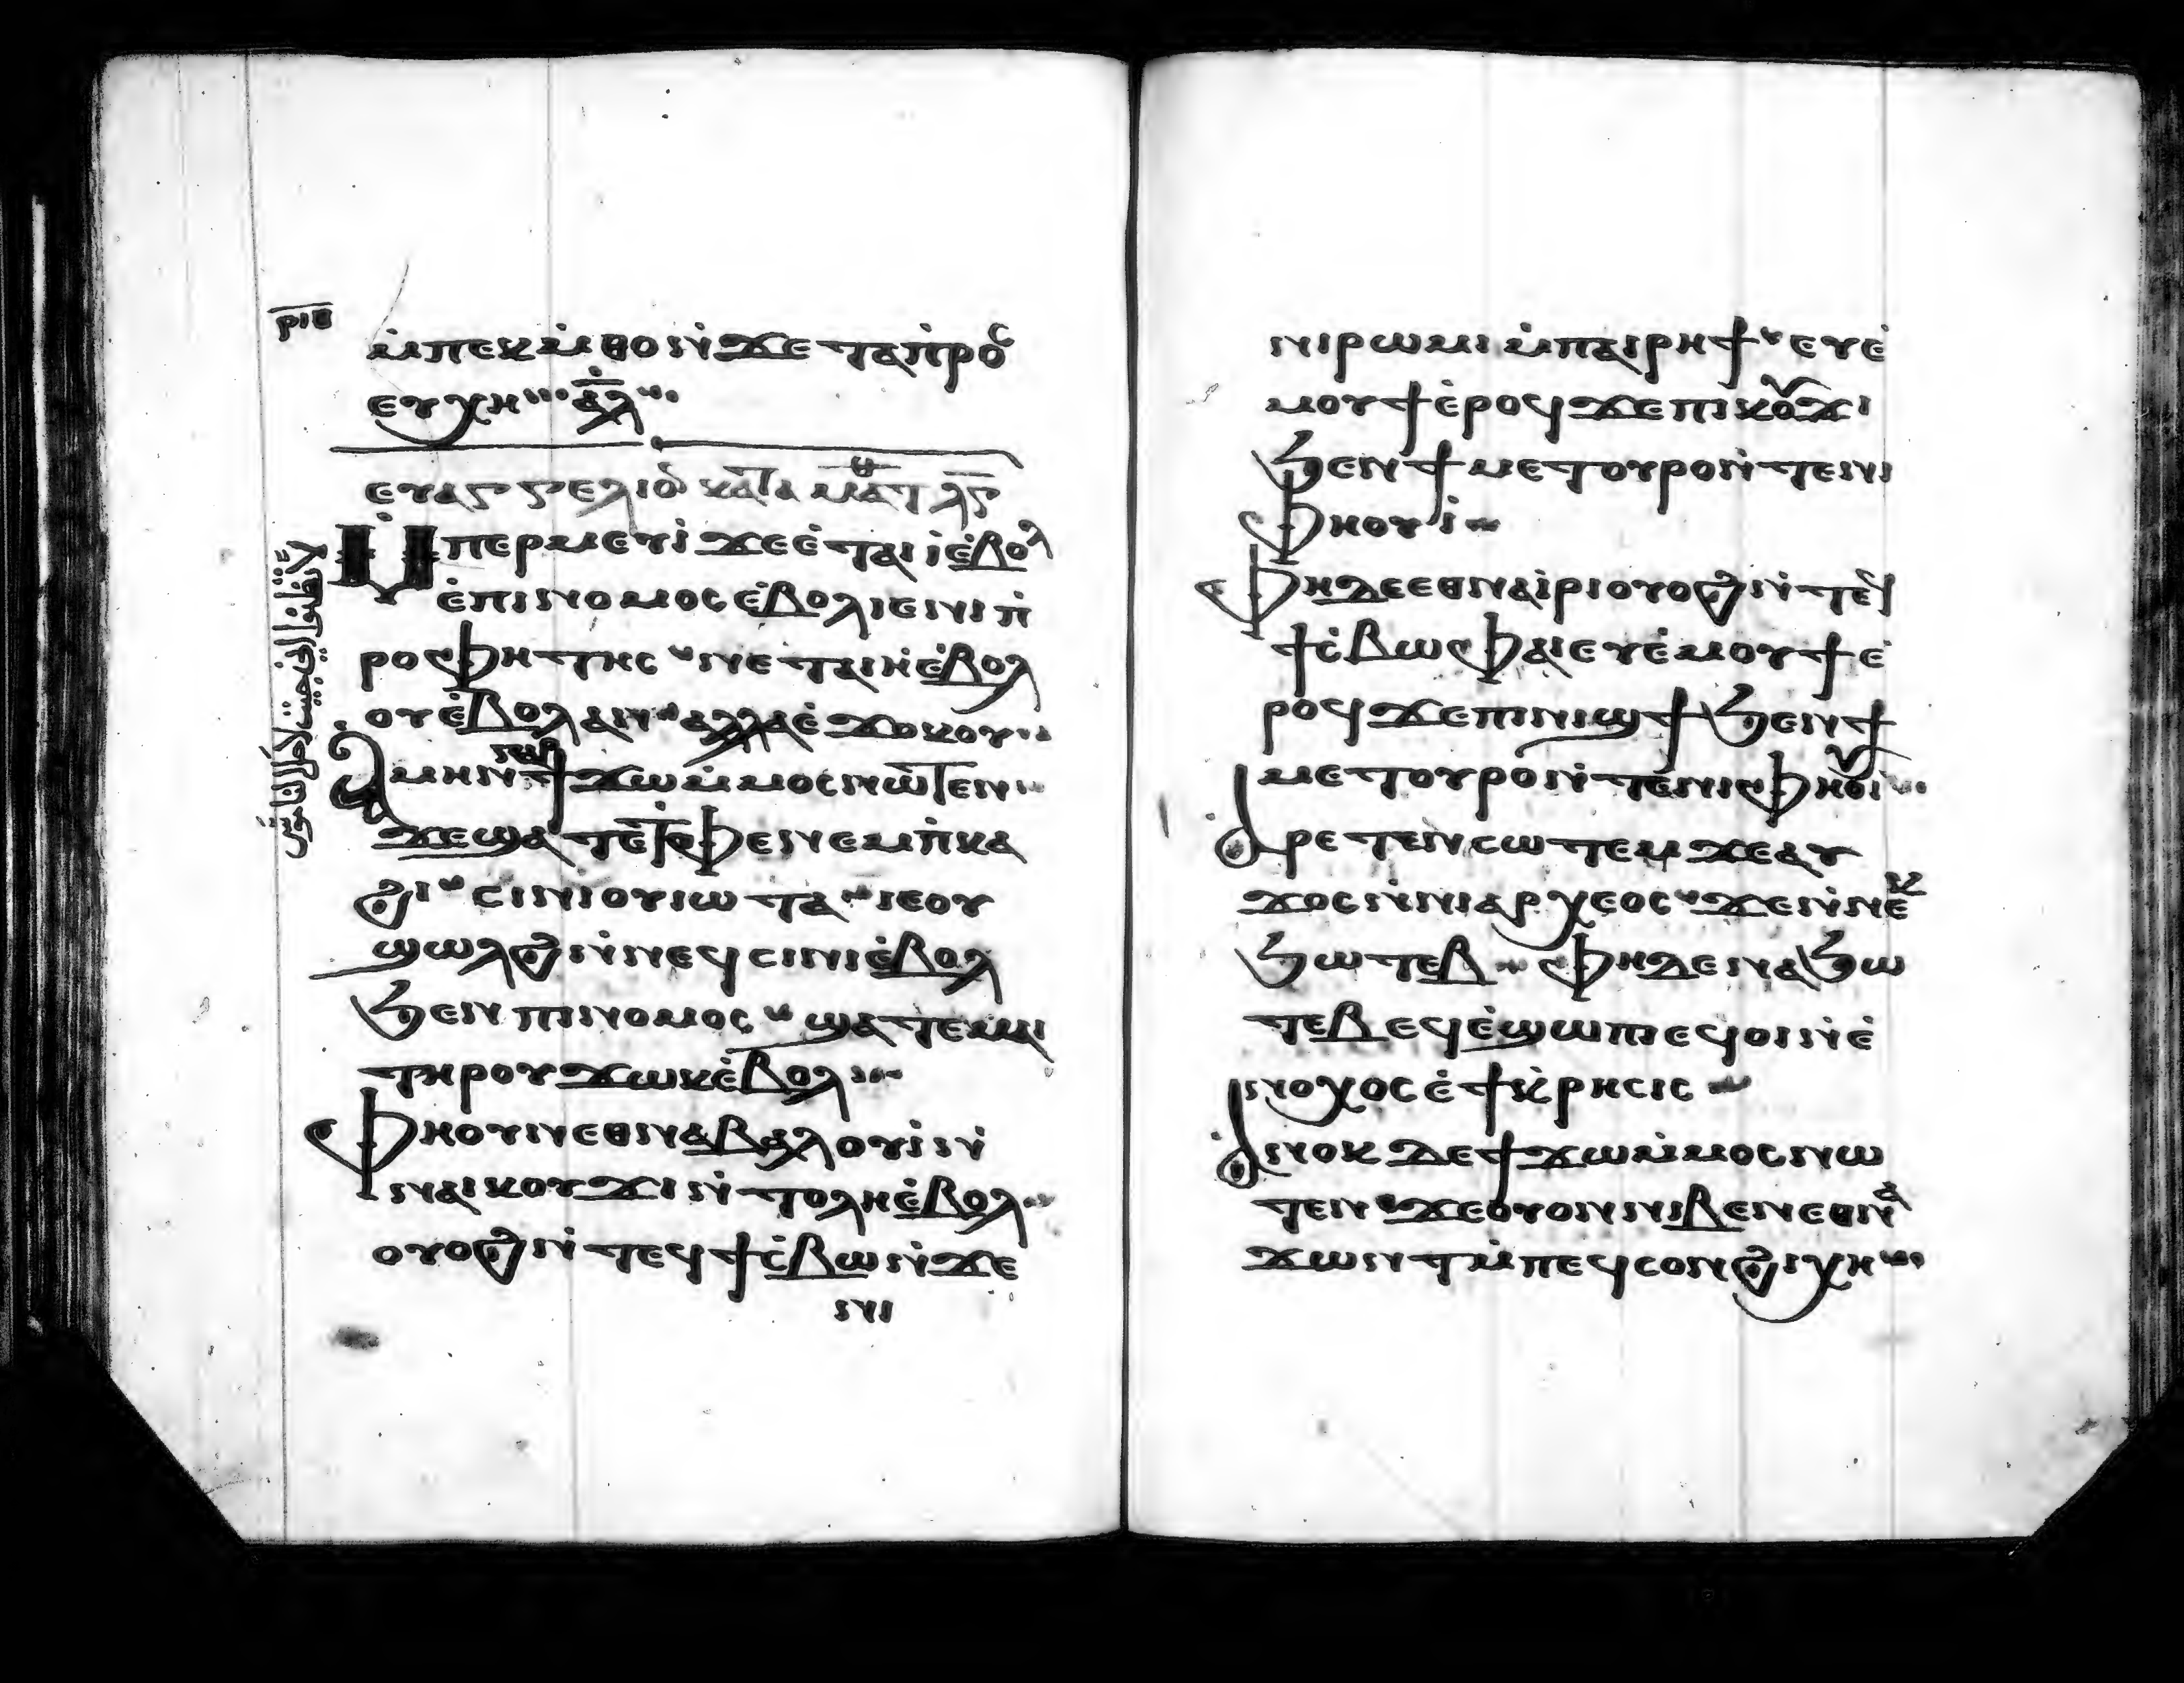 ⲣⲓⲃ
ⲙ̇ⲡⲉⲕⲙ̇ⲑⲟ ⲛ̇ϫⲉ ⲧⲁⲡ̇ⲣⲟⲥ
ⲉⲩⲭⲏ ⲁ̅ⲗ̅
ⲉⲩⲁⲅⲅⲉⲗⲓⲟ ⲕⲁⲧⲁ ⲙⲁⲧⲑ ⲗⲅ
ⲙⲡⲉⲣⲙⲉⲩⲓ̇ ϫⲉ ⲉ̇ⲧⲁⲓⲓ̇ ⲉ̇ⲃⲟⲗ
لا تظنوا اني جيت لاحل الناموس
ⲉ̇ⲡⲓⲛⲟⲙⲟⲥ ⲉ̇ⲃⲟⲗ ⲓⲉ ⲛⲓⲡ̇
ⲣⲟⲫⲏⲧⲏⲥ ⲛⲉⲧⲁⲓⲓ̇ ⲉ̇ⲃⲟⲗ
ⲟⲩ ⲉ̇ⲃⲟⲗ ⲁⲛ ⲁⲗⲗⲁ ⲉ̇ϫⲟⲕⲟⲩ
ⲁⲙⲏⲛ ϯϫⲱ ⲙ̇ⲙⲟⲥ ⲛⲱⲧⲉⲛ
ϫⲉ ϣⲁⲧⲉ ⲧⲫⲉ ⲛⲉⲙ ⲡ̇ⲕⲁ
ϩⲓ ⲥⲓⲛⲓ ⲟⲩⲓⲱⲧⲁ ⲓⲉ ⲟⲩ
ϣⲱⲗϩ ⲛ̇ⲛⲉϥⲥⲓⲛⲓ ⲉ̇ⲃⲟⲗ
ϧⲉⲛ ⲡⲓⲛⲟⲙⲟⲥ ϣⲁⲧⲉ ⲛⲁⲓ
ⲧⲏⲣⲟⲩ ϫⲱⲕ ⲉ̇ⲃⲟⲗ
ⲫⲏ ⲟⲩⲛ ⲉⲑⲛⲁⲃⲁⲗ ⲟⲩⲓ̇ ⲛ̇
ⲛⲁⲓⲕⲟⲩϫⲓ ⲛ̇ⲧⲟⲗⲏ ⲉ̇ⲃⲟⲗ
ⲟⲩⲟϩ ⲛ̇ⲧⲉϥϯⲥ̇ⲃⲱ ⲛ̇ϫⲉ
ⲛⲓ
ⲛⲓⲣⲱⲙⲓ ⲙ̇ⲡⲁⲓⲣⲏϯ ⲉⲩⲉ̇
ⲙⲟⲩϯ ⲉ̇ⲣⲟϥ ϫⲉ ⲡⲓⲕⲟⲩϫⲓ
ϧⲉⲛ ϯⲙⲉⲧⲟⲩⲣⲟ ⲛ̇ⲧⲉ ⲛⲓ
ⲫⲏⲟⲩⲓ̇
ⲫⲏ ⲇⲉ ⲉⲑⲛⲁⲓ̇ⲣⲓ ⲟⲩⲟϩ ⲛ̇ⲧⲉϥ
ϯⲥ̇ⲃⲱ ⲫⲁⲓ ⲉⲩⲉ̇ⲙⲟⲩϯ ⲉ̇
ⲣⲟϥ ϫⲉ ⲡⲓⲛⲓϣϯ ϧⲉⲛ ϯ
ⲙⲉⲧⲟⲩⲣⲟ ⲛ̇ⲧⲉ ⲛⲓⲫⲏⲟⲩⲓ
ⲁⲣⲉⲧⲉⲛⲥⲱⲧⲉⲙ ϫⲉ ⲁⲩ
ϫⲟⲥ ⲛ̇ⲛⲓⲁⲣⲭⲉⲟⲥ ϫⲉ ⲛ̇ⲛⲉⲕ
ϧⲱⲧⲉⲃ ⲫⲏ ⲇⲉ ⲉⲛⲁϧⲱ
ⲧⲉⲃ ⲉϥⲉ̇ϣⲱⲡⲓ ⲉϥⲟⲓ ⲛ̇ⲉ̇
ⲛⲟⲭⲟⲥ ⲉ̇ϯⲕ̇ⲣⲏⲥⲓⲥ
ⲁⲛⲟⲕ ⲇⲉ ϯϫⲱ ⲙ̇ⲙⲟⲥ ⲛⲱ
ⲧⲉⲛ ϫⲉ ⲟⲩⲟⲛ ⲛⲓⲃⲉⲛ ⲉⲑⲛⲁ
ϫⲱⲛⲧ ⲙ̇ⲡⲉϥⲥⲟⲛ ϩⲓⲭⲏ